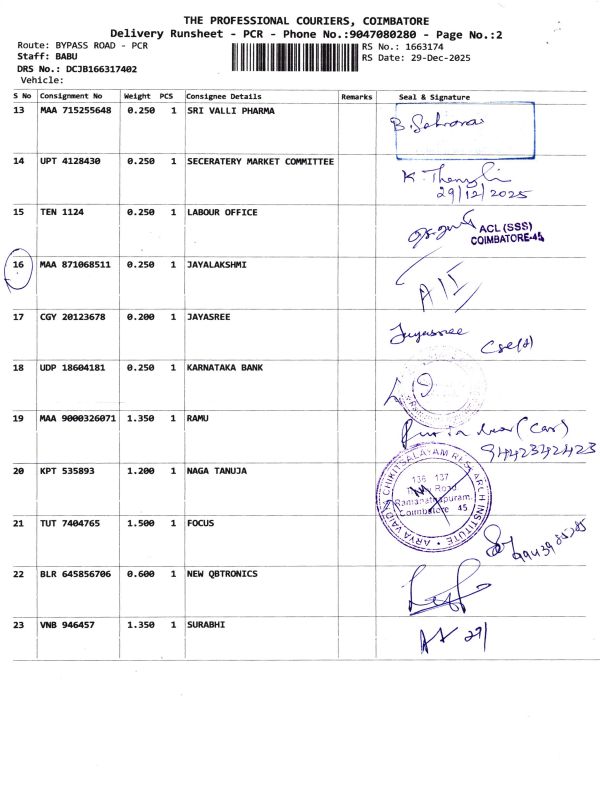 THE PROFESSIONAL COURIERS, COIMBATORE
Delivery Runsheet - PCR - Phone No.:9047080280 - Page No.:2
Route: BYPASS ROAD - PCR
RS No.: 1663174
Staff: BABU
RS Date: 29-Dec-2025
DRS No.: DCJB166317402
Vehicle:
S No Consignment No Weight PCS Consignee Details Remarks Seal & Signature
13 MAA 715255648 0.250 1 SRI VALLI PHARMA
14 UPT 4128430 0.250 1 SECERATERY MARKET COMMITTEE
29/12/2025
15 TEN 1124 0.250 1 LABOUR OFFICE
ACL (SSS)
COIMBATORE-45
16 MAA 871068511 0.250 1 JAYALAKSHMI
17 CGY 20123678 0.200 1 JAYASREE
Jayasree
18 UDP 18604181 0.250 1 KARNATAKA BANK
19 MAA 9000326071 1.350 1 RAMU
9442342423
20 KPT 535893 1.200 1 NAGA TANUJA
ARYA VAIDYA CHIKITSALAYAM RESEARCH INSTITUTE
136 137
Road
Ramanathapuram,
Coimbatore 45
21 TUT 7404765 1.500 1 FOCUS
22 BLR 645856706 0.600 1 NEW QBTRONICS
23 VNB 946457 1.350 1 SURABHI